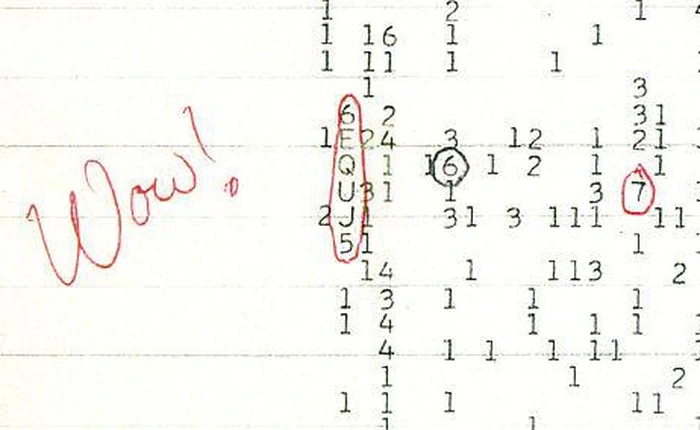 Wow!
1 2 1
1 16 1 1
1 11 1 1
1 3
6 2 31
1 E24 3 12 1 21
Q 1 16 1 2 1 1
U31 1 3 7
2J1 31 3 111 11
51 1
14 1 113 2
1 3 1 1 1
1 4 1 1 1
4 1 1 1 11
1 1 2
1 1 1 11